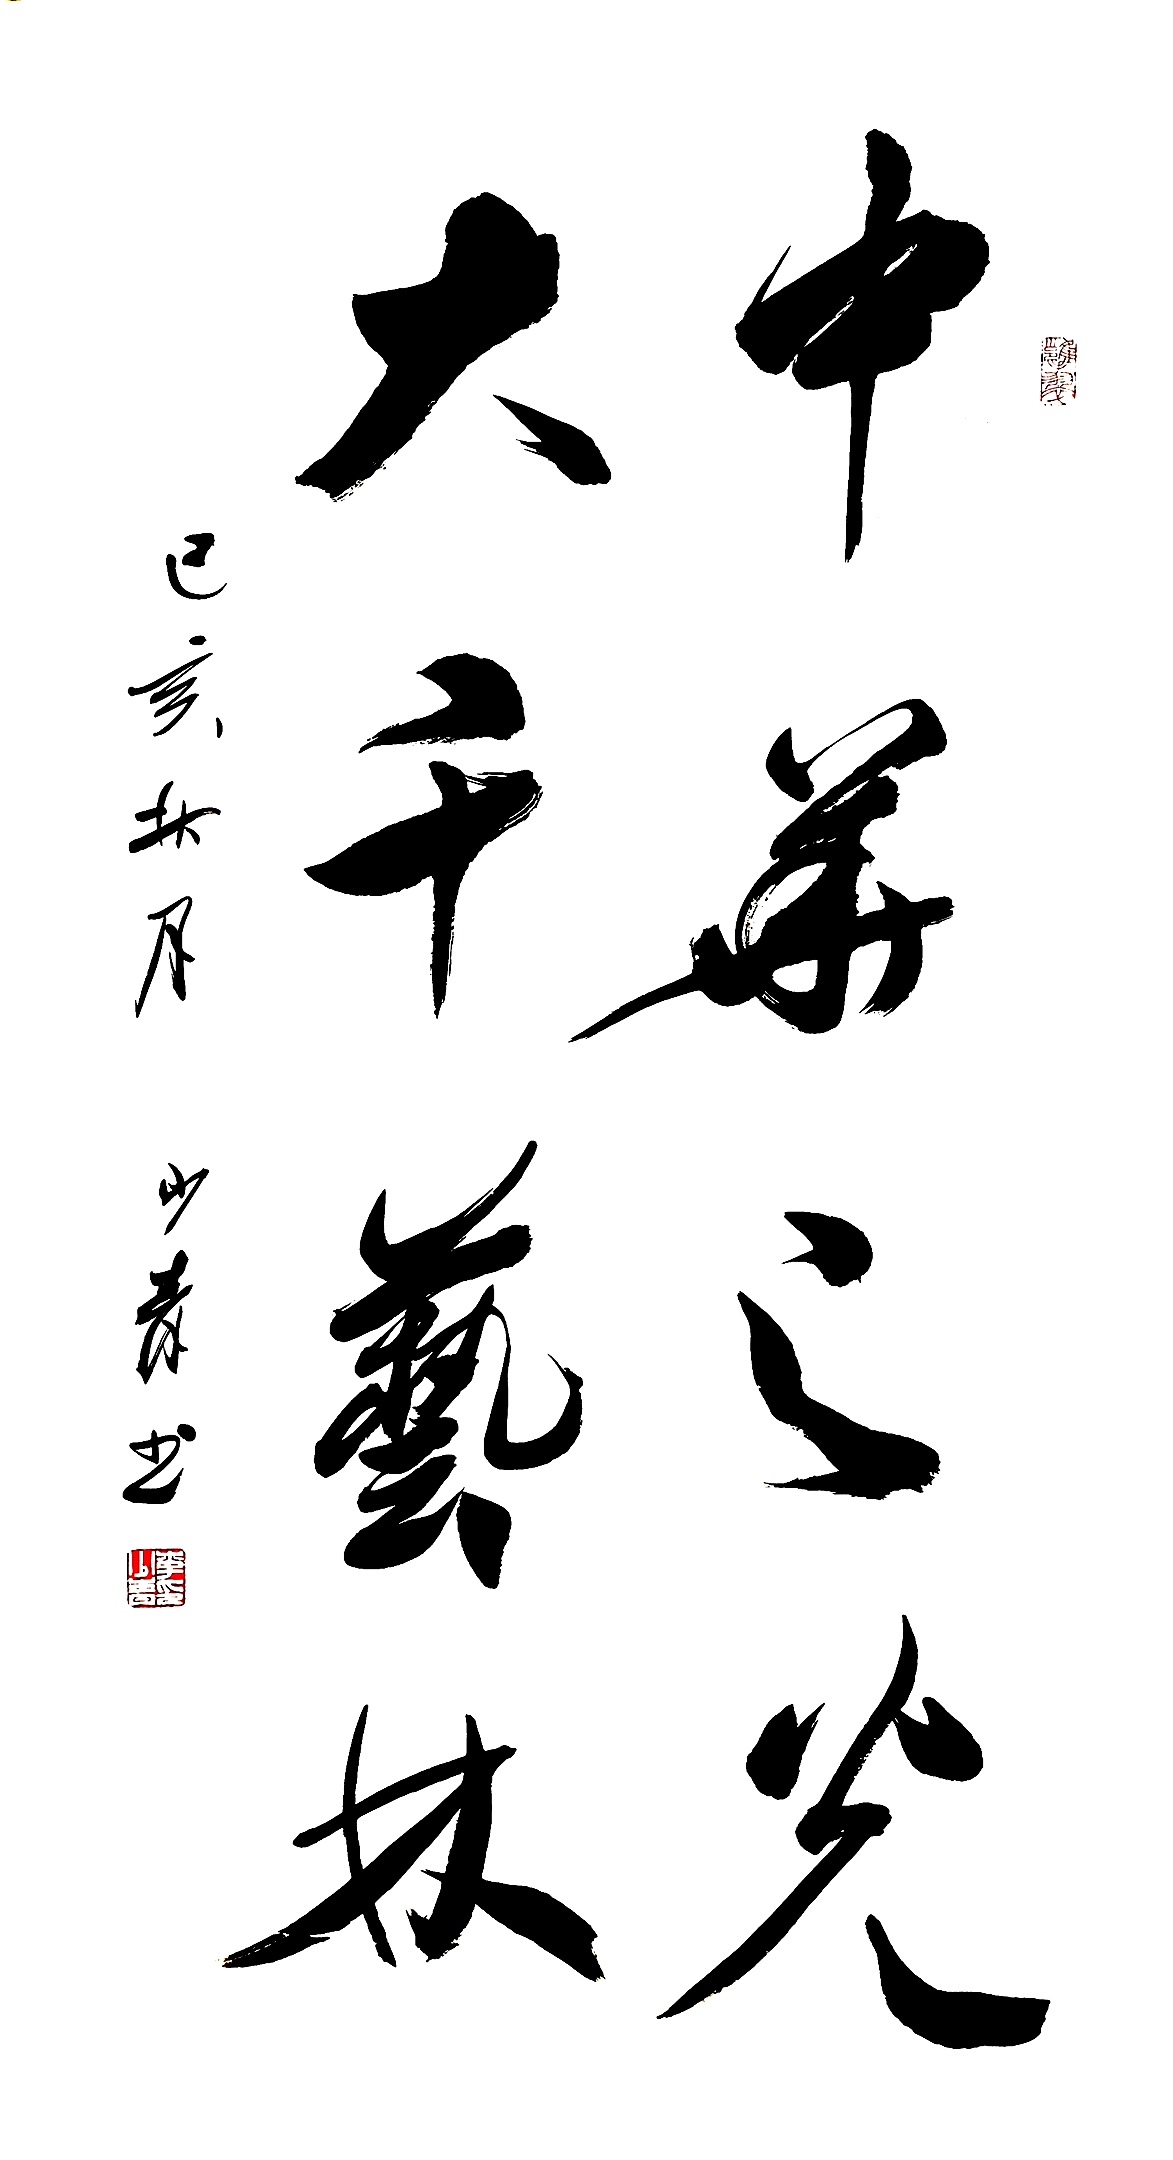 中華之光
大千藝林
己亥秋月 少青书